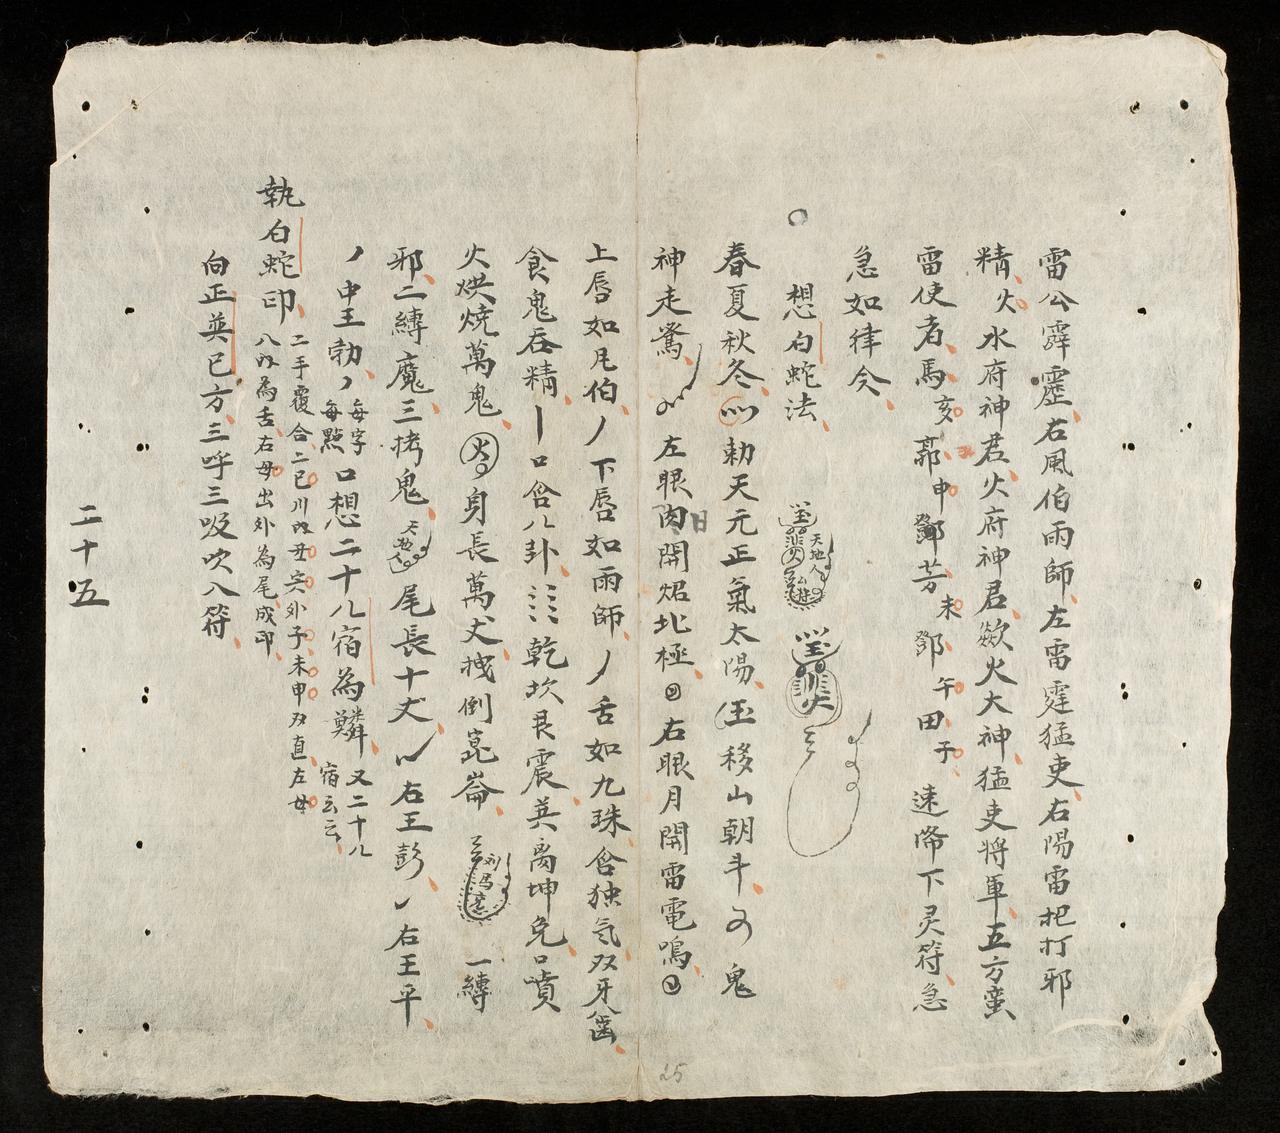 雷公霹靂右風伯雨師左雷霆猛吏右陽雷把打邪
精火水府神君火府神君欻火大神猛吏將軍五方蛮
雷使者馬亥郭申鄧芳未鄧午田子速降下灵符急
急如律令
想白蛇法
天地人
春夏秋冬勅天元正氣太陽玉移山朝斗鬼
神走驚左眼肉日開炤北極右眼月開雷電鳴
上唇如凡伯下唇如雨師舌如九珠含独気双牙齒
食鬼吞精口含八卦乾坎艮震巽离坤兑口噴
火烘燒萬鬼火身長萬丈拽倒崑崙一縛
邪二縛魔三拷鬼尾長十丈右王彭右王平
中王勃每字每點口想二十八宿為鱗又二十八宿云云
執白蛇印二手覆合二巳川外子未申直左母
八為舌右母出外為尾成印
向正巽巳方三呼三吸吹入符
二十五
25